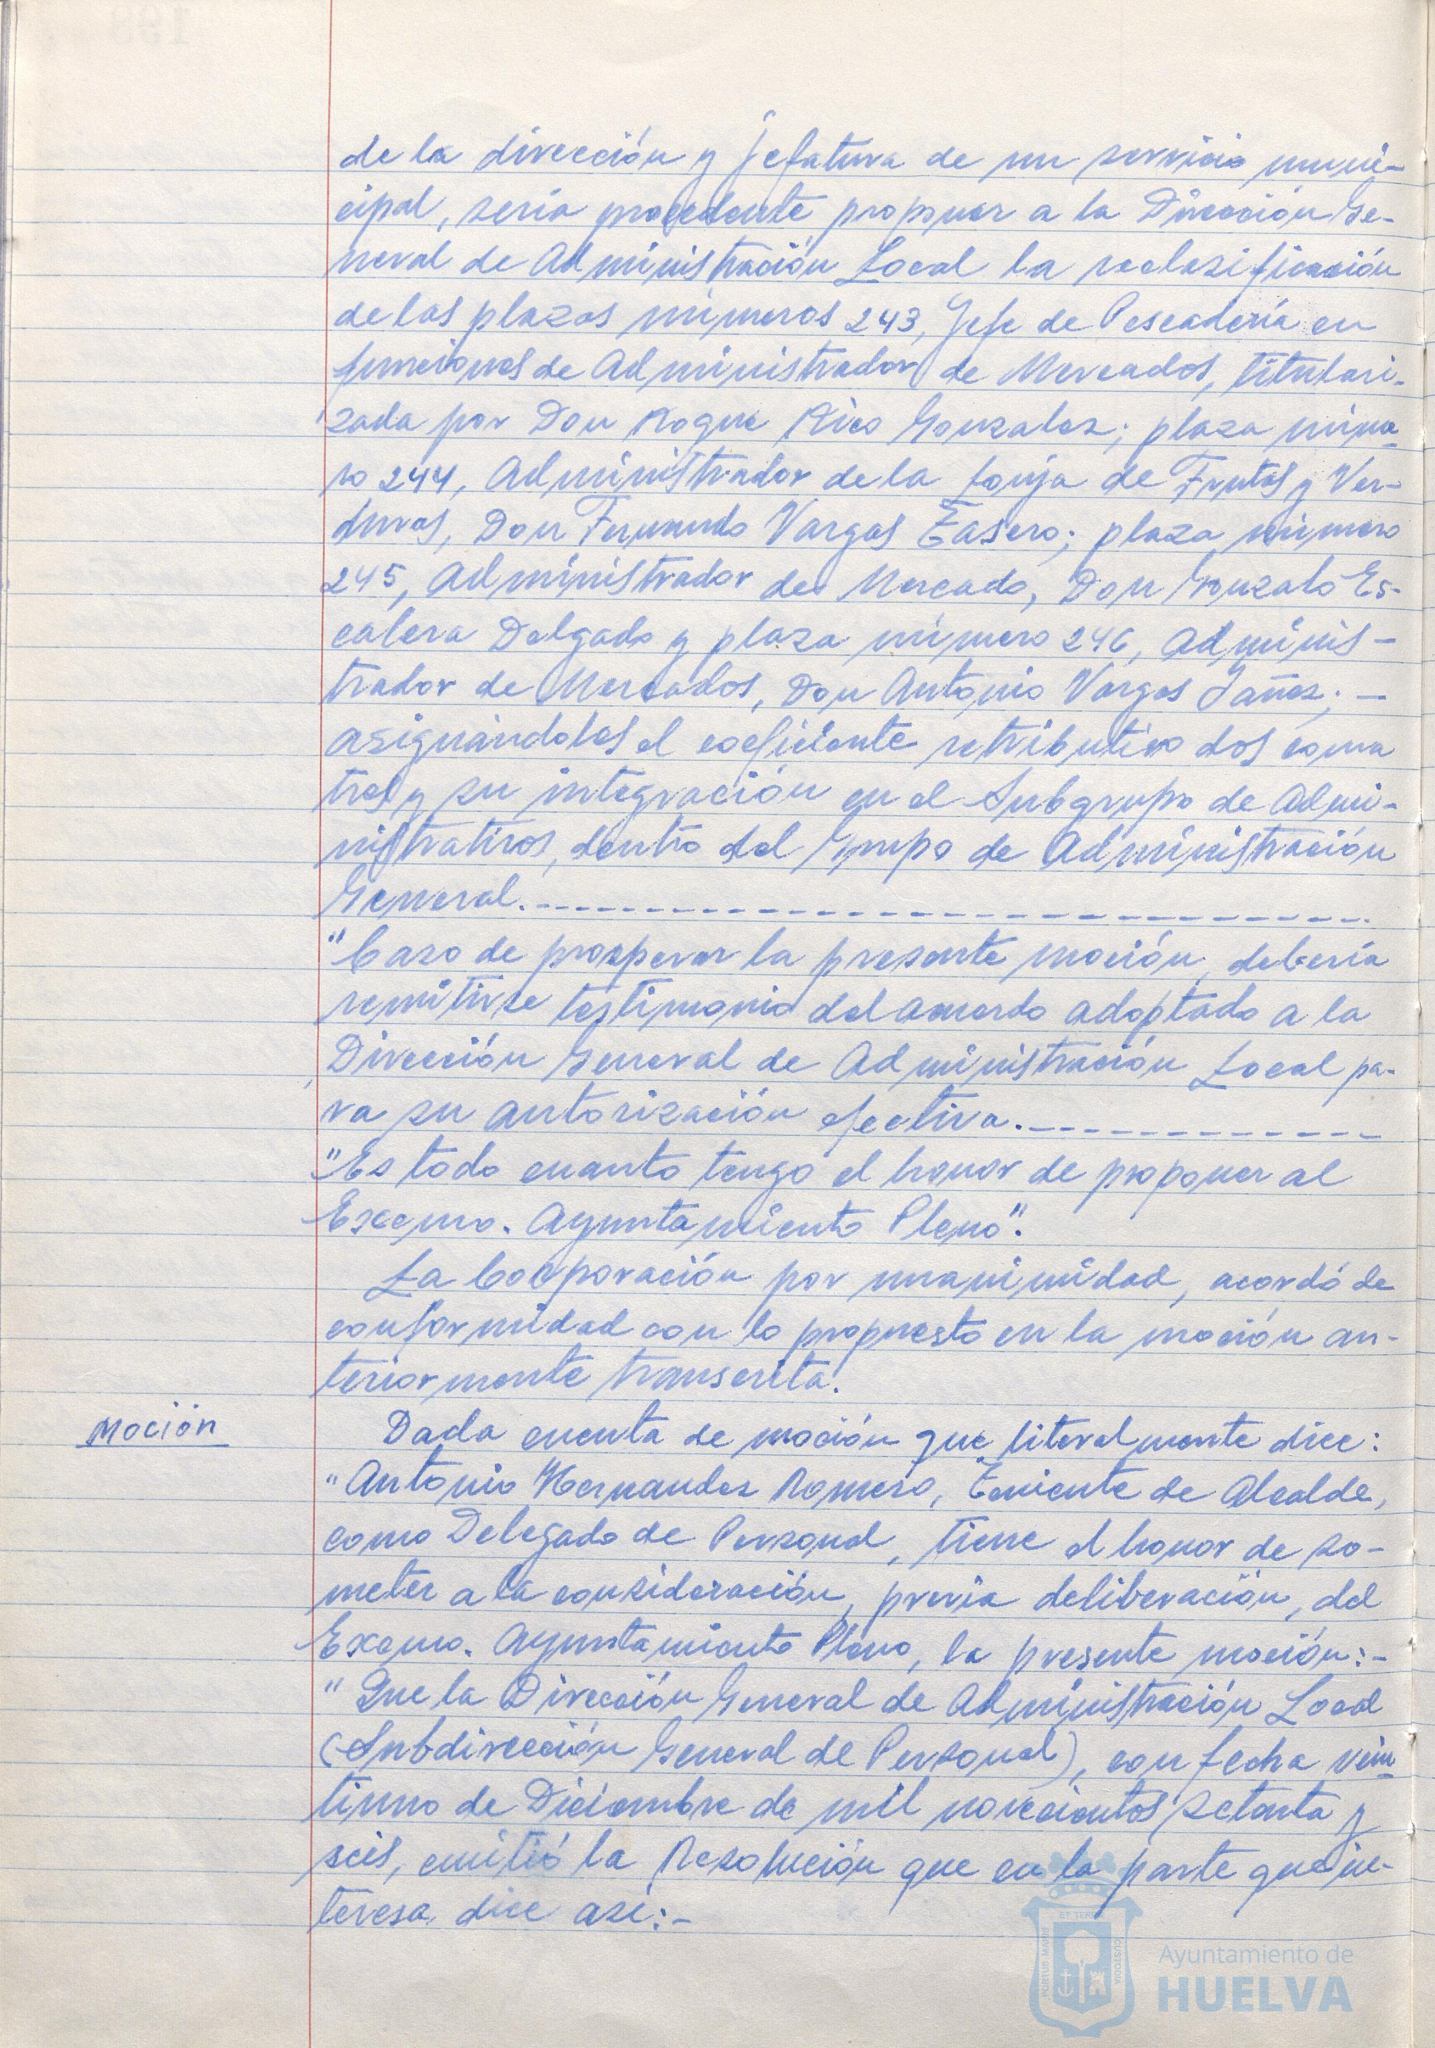 de la dirección y Jefatura de un servicio muni-
cipal, sería procedente proponer a la Dirección Ge-
neral de Administración Local la reclasificación
de las plazas números 243, Jefe de Pescadería en
funciones de Administrador de Mercados, titulari-
zada por Don Roque Rico Gonzalez; plaza núme-
ro 244, Administrador de la Lonja de Frutas y Ver-
duras, Don Fernando Vargas Tasero; plaza número
245, Administrador de Mercado, Don Gonzalo Es-
calera Delgado y plaza número 246, Adminis-
trador de Mercados, Don Antonio Vargas Jañez; -
asignándoles el coeficiente retributivo dos coma
tres y su integración en el Subgrupo de Admi-
nistrativos, dentro del Grupo de Administración
General.
"Caso de prosperar la presente moción, debería
remitirse testimonio del acuerdo adoptado a la
Dirección General de Administración Local pa-
ra su autorización efectiva.
"Es todo cuanto tengo el honor de proponer al
Excmo. Ayuntamiento Pleno".
La Corporación por unanimidad, acordó de
conformidad con lo propuesto en la moción an-
teriormente transcrita.
Moción
Dada cuenta de moción que literalmente dice:
"Antonio Hernandez Romero, Teniente de Alcalde,
como Delegado de Personal, tiene el honor de so-
meter a la consideración, previa deliberación, del
Excmo. Ayuntamiento Pleno, la presente moción:-
"Que la Dirección General de Administración Local
(Subdirección General de Personal), con fecha vein
tiuno de Diciembre de mil novecientos setenta y
seis, emitió la Resolución que en la parte que in-
teresa, dice así:-
Ayuntamiento de
HUELVA